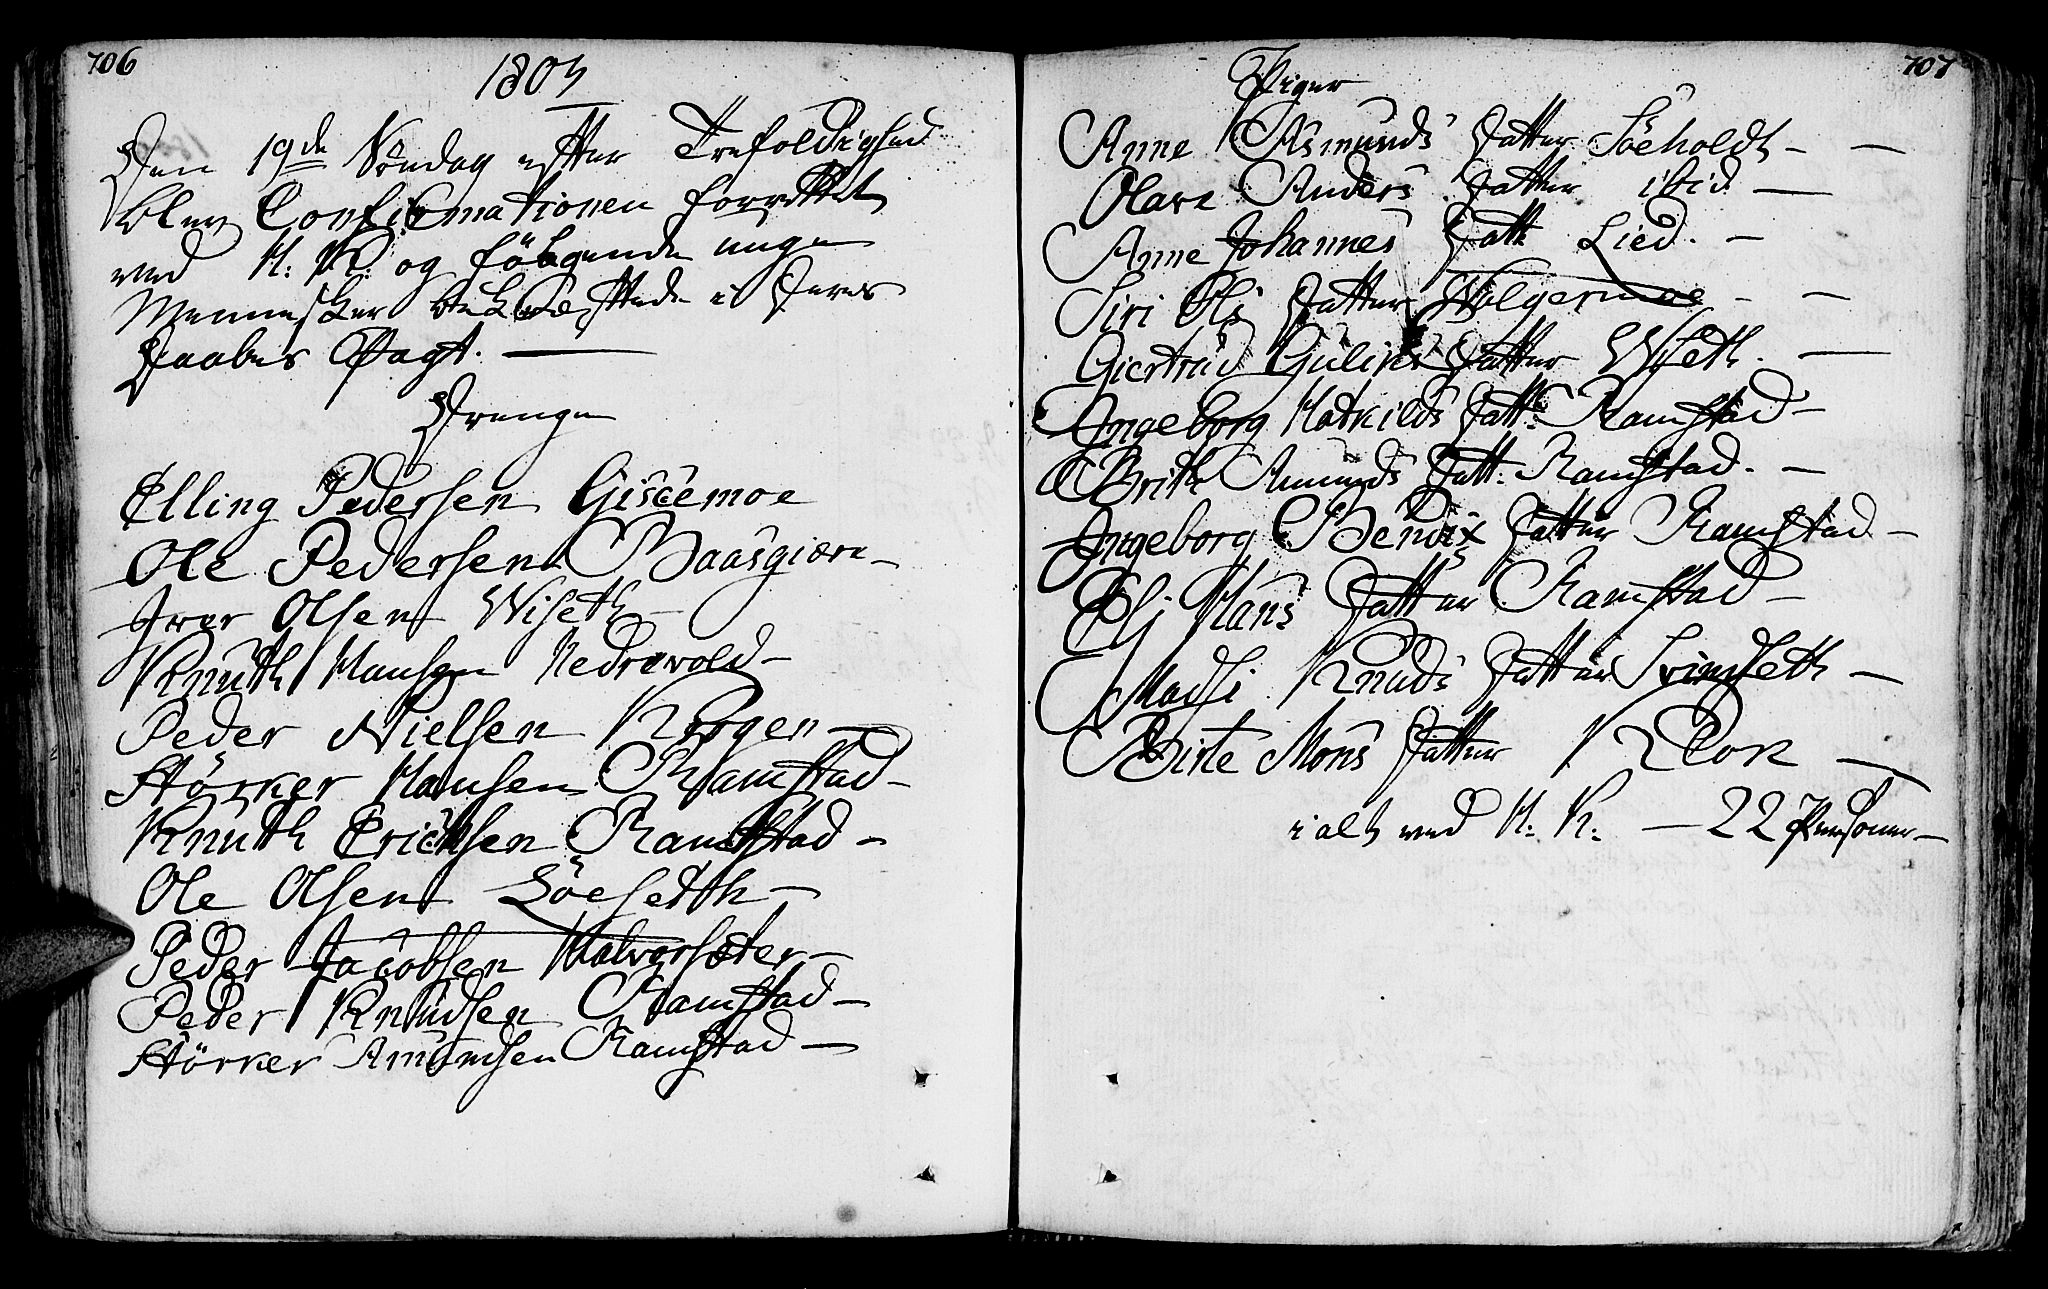 706
1803
Den 19de Søndag efter Trefoldighed
blev Confirmationen forrettet
ved H: K: og følgende unge
Mennesker bekræftede i Deres
Daabes Pagt.
Drenge
Elling Pedersen Giscemoe
Ole Pedersen Baasgiære
Iver Olsen Wiseth
Knuth Hansen Nedrevold
Peder Nielsen Korgen
Störker Hansen Ramstad
Knuth Ericksen Ramstad
Ole Olsen Löeseth
Peder Jacobsen Halvorsæter
Peder Knudsen Ramstad
Störker Amundsen Ramstad
707
Piger
Anne Asmunds Datter Söeholdt
Olava Anders Datter ibid.
Anne Johannes Datt Lied.
Siri Ols Datter Wolgermoe
Giertrud Datter Wiseth.
Ingeborg Mathilds Datt: Ramstad
Brith Amunds Datt: Ramstad.
Ingeborg Bendix Datter Ramstad
Eli Hans Datter Ramstad
Madsi Knuds Datter Svindseth
Birte Mons Datter Klok
i alt ved H: K: — 22 Personer